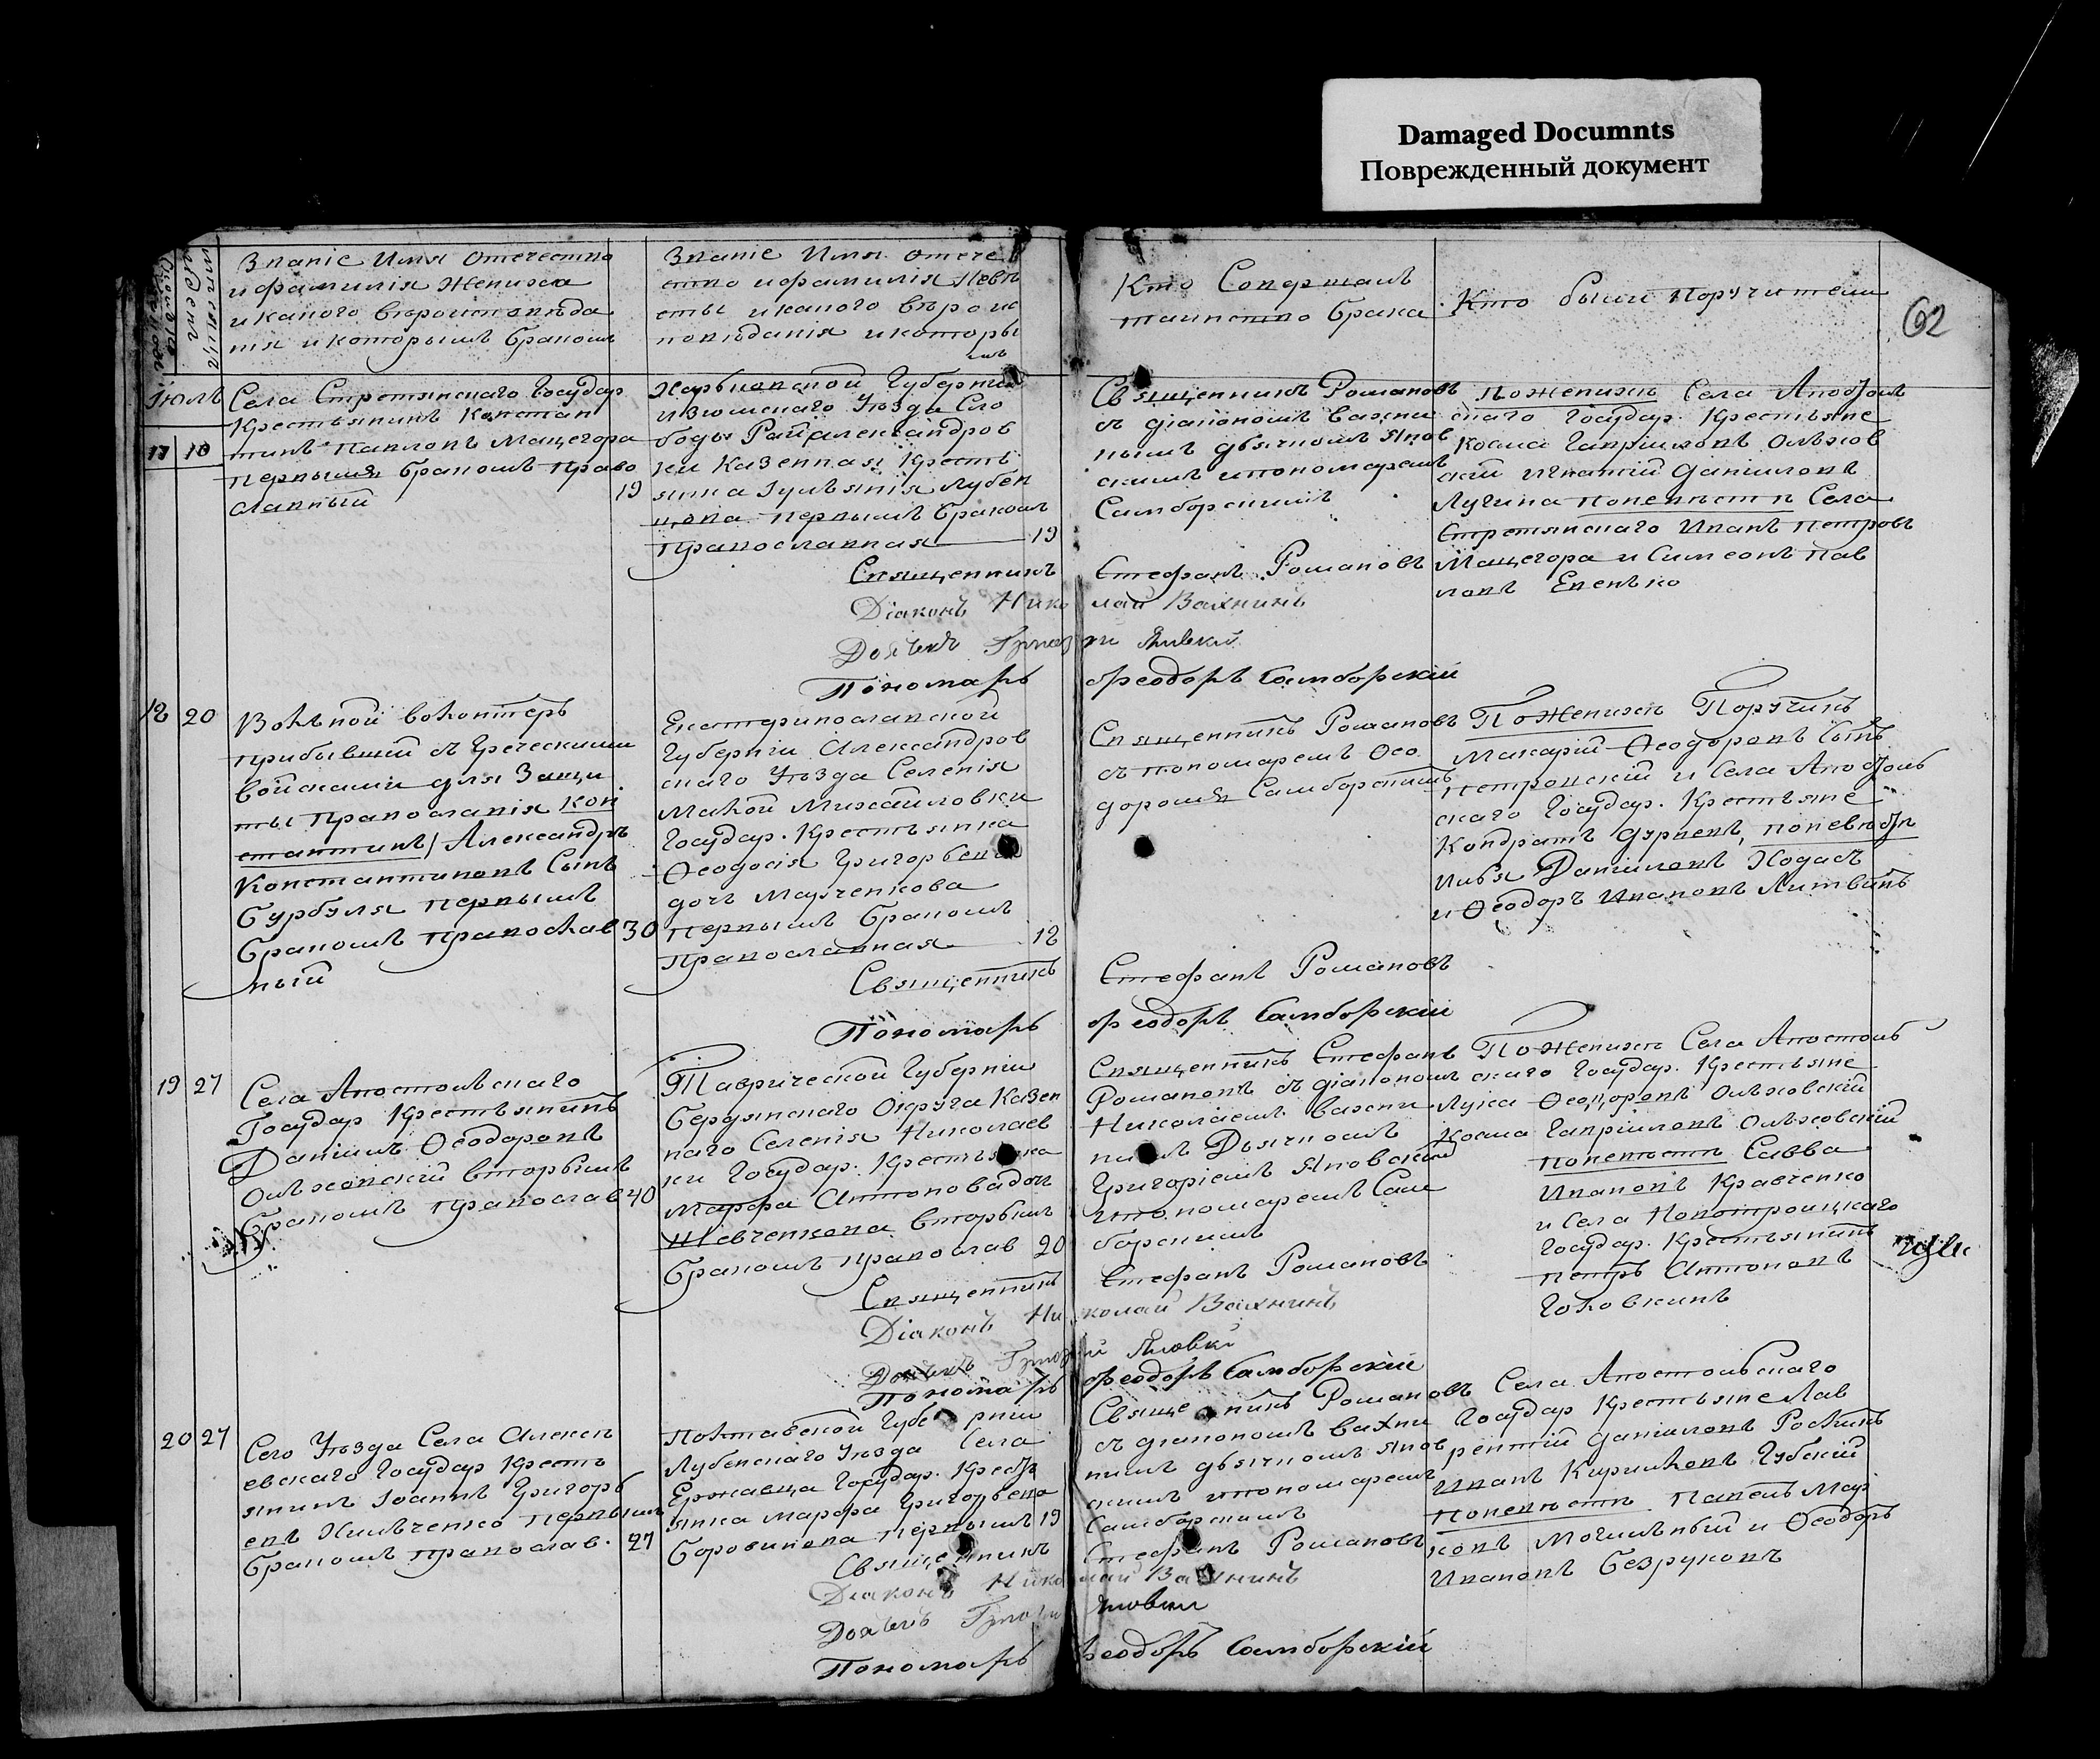 Damaged Documnts
Поврежденный документ
62
Званіе Имя Отечество
и фамилія Жениха
и какого вѣроисповѣда
нія и которымъ бракомъ
Званіе Имя отече
ство и фамилія Невѣ
сты и какого вѣроис
повѣданія и которы
мъ
Кто Совершалъ
таинство брака
Кто были поручители
Іюль
17 18
Села Стретянскаго Государ
Крестьянинъ Констан
тинъ Павловъ Мацегора
первымя бракомъ право
славный 19
Харьковской Губерніи
Изюмскаго Уѣзда Сло
боды Райалександров
ки Казенная Кресть
янка Іульянія Лубен
цова первымъ бракомъ
православная 19
Священникъ Романовъ
съ діакономъ Вахни
нымъ дьячкомъ Янов
скимъ и пономаремъ
Самборскимъ
По женихѣ Села Апостоль
скаго Государ. Крестьяне
Косма Гавріиловъ Ольхов
скій Игнатій Даніиловъ
Лугина по невѣстѣ Села
Стретянскаго Иванъ Петровъ
Мацегора и Симеонъ Пав
ловъ Евенко
Священникъ Стефанъ Романовъ
Діаконъ Николай Вахнинъ
Дьячекъ Григорій Яновскій
Пономарь Ѳеодоръ Самборскій
18 20
Вольной волонтеръ
прибывшій съ Греческими
войсками для Защи
ты Православія Кон
стантинъ/ Александръ
Константиновъ Сынъ
Бурбуля первымъ
бракомъ православ 30
ный
Екатеринославской
Губерніи Александров
скаго Уѣзда Селенія
Малой Михайловки
Государ. Крестьянка
Ѳеодосія Григорьева
дочь Марченкова
первымъ бракомъ
православная 18
Священникъ Романовъ
съ пономаремъ Ѳео
доромъ Самборскимъ
По Женихѣ Поручикъ
Макарій Ѳеодоровъ Сынъ
Петровскій и Села Апостоль
скаго Государ. Крестьяне
Кондратъ Дурневъ, по невѣстѣ
Илья Даніиловъ Ходасъ
и Ѳеодоръ Ивановъ Литвинъ
Священникъ Стефанъ Романовъ
Пономарь Ѳеодоръ Самборскій
19 27
Села Апостольскаго
Государ Крестьянинъ
Даніилъ Ѳеодоровъ
Ольховскій вторымъ
бракомъ православ 40
Таврической Губерніи
Бердянскаго Округа Казен
наго Селенія Николаев
ки Государ. Крестьянка
Марфа Антонова дочь
Шевченкова вторымъ
бракомъ православ 20
Священникъ Стефанъ
Романовъ съ діакономъ
Николаемъ Вахни
нымъ Дьячкомъ
Григоріемъ Яновскимъ
и пономаремъ Сам
борскимъ
По Женихѣ Села Апостоль
скаго Государ. Крестьяне
Лука Ѳеодоровъ Ольховскій
Косма Гавріиловъ Ольховскій
по невѣстѣ Савва
Ивановъ Кравченко
и Села Новотроицкаго
Государ. Крестьянинъ
Петръ Антоновъ
Головкинъ
Священникъ Стефанъ Романовъ
Діаконъ Николай Вахнинъ
Дьячекъ Григорій Яновскій
Пономарь Ѳеодоръ Самборскій
20 27
Сего Уѣзда Села Алексѣ
евскаго Государ Кресть
янинъ Іоаннъ Григорь
евъ Хильченко первымъ
бракомъ православ. 27
Полтавской Губерніи
Лубенскаго Уѣзда Села
Ержавца Государ. Крест
янка Марфа Григорьева
Боровикова первымъ 19
Священникъ Романовъ
съ діакономъ Вахни
нымъ дьячкомъ Янов
скимъ и пономаремъ
Самборскимъ
Села Апостольскаго
Государ Крестьяне Лав
рентій Даніиловъ
Иванъ Кириловъ Губскій
по невѣстѣ Павелъ Мар
ковъ Могильный и Ѳеодоръ
Ивановъ Безруковъ
Священникъ Стефанъ Романовъ
Діаконъ Николай Вахнинъ
Дьячекъ Григорій Яновскій
Пономарь Ѳеодоръ Самборскій